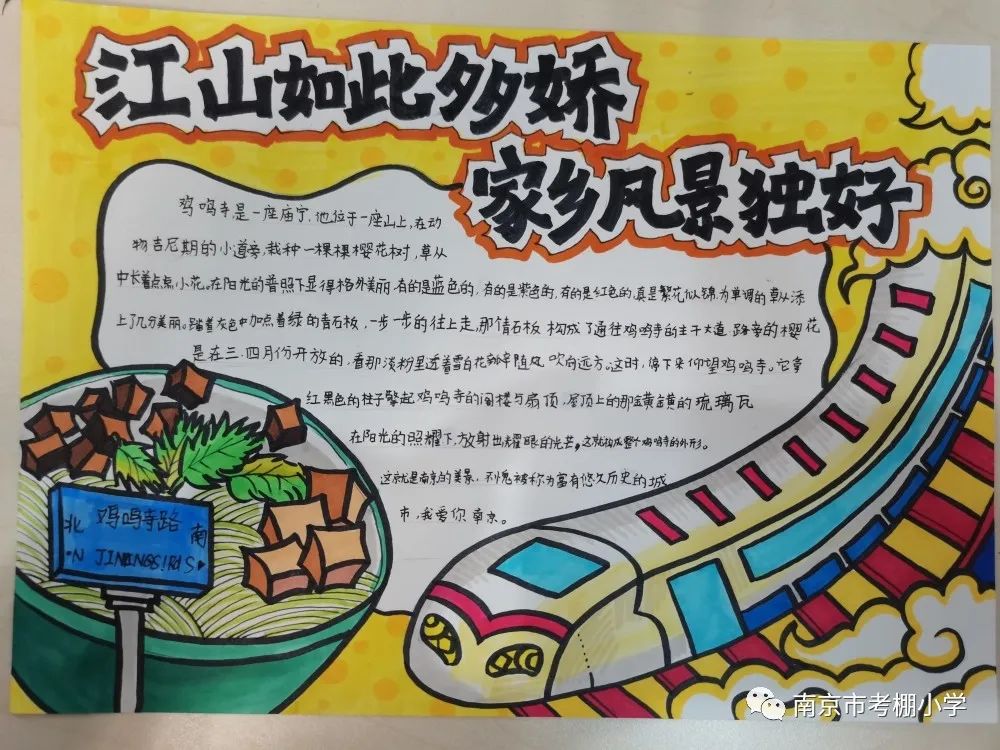 江山如此多娇
家乡风景独好
鸡鸣寺是一座庙宇,他位于一座山上,在动
物吉尼期的小道旁,栽种一棵棵樱花树,草丛
中长着点点小花。在阳光的普照下显得格外美丽.有的是蓝色的,有的是紫色的,有的是红色的,真是繁花似锦,为单调的草丛添
上了几分美丽。踏着灰色中加点着绿的青石板,一步一步的往上走,那个青石板 构成了通往鸡鸣寺的主干大道.路旁的樱花
是在三.四月份开放的,看那淡粉里透着雪白花瓣随风 吹向远方。这时,停下来仰望鸡鸣寺。它拿
红黑色的柱子擎起鸡鸣寺的阁楼与扇顶,屋顶上的那金黄金黄的琉璃瓦
在阳光的照耀下,放射出耀眼的光芒,这就构成整个鸡鸣寺的外形。
这就是南京的美景,不愧被称为富有悠久历史的城
市,我爱你南京。
北 鸡鸣寺路 南
N S
南京市考棚小学